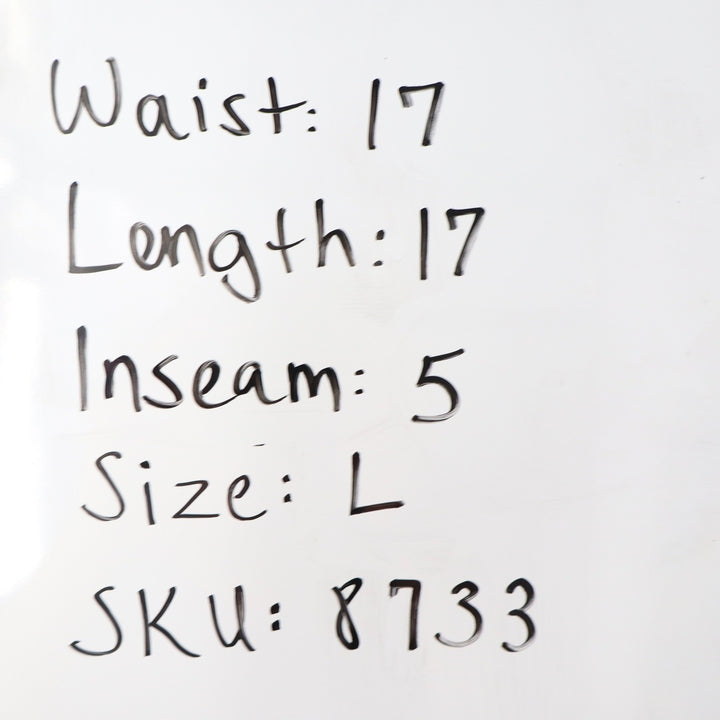 Waist: 17
Length: 17
Inseam: 5
Size: L
SKU: 8733